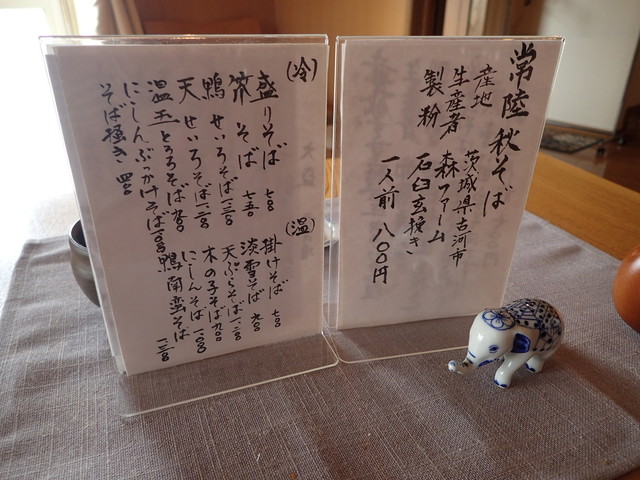 常陸秋そば
産地 茨城県古河市
生産者 森ファーム
製粉 石臼玄挽き
一人前 八〇〇円
(冷)
盛りそば 七〇〇
笊そば 七五〇
鴨せいろそば
天せいろそば
温玉とろろそば 九〇〇
にしんぶっかけそば 一〇〇〇
そば掻き
(温)
掛けそば 七〇〇
淡雪そば 九〇〇
天ぷらそば
木の子そば 九〇〇
にしんそば 一〇〇〇
鴨南蛮そば